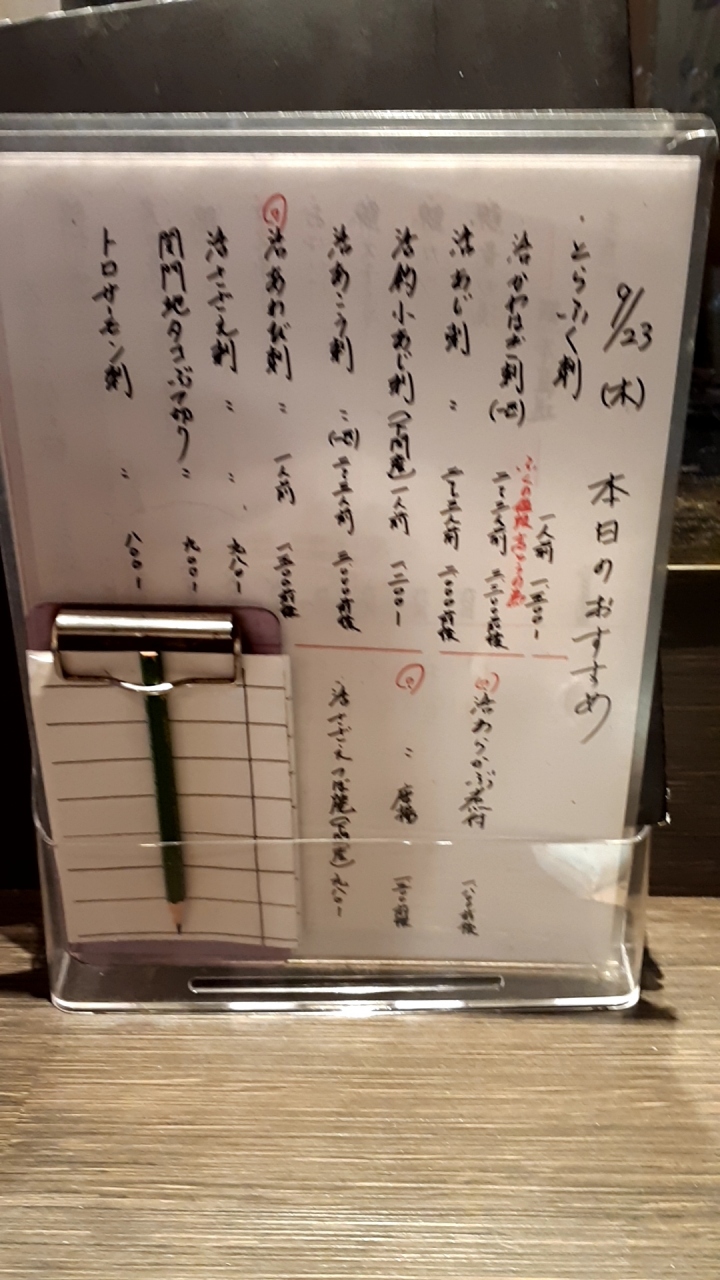 9/23(木) 本日のおすすめ
とらふく刺 一人前 一五〇〇-
活かわはぎ刺 (一匹) 二~三人前 三二〇〇前後
活あじ刺 〃 二~三人前 二〇〇〇前後
活釣小あじ刺(下関産) 一人前 一二〇〇-
活あこう刺 〃 (一匹) 二~三人前 三〇〇〇前後
活あわび刺 〃 一人前 一五〇〇前後
活さざえ刺 〃 〃 九八〇-
関門地タコぶつ切り 〃 九〇〇-
トロサーモン刺 〃 八〇〇-
活あらかぶ煮付 一八〇〇前後
〃 唐揚 一五〇〇前後
活さざえつぼ焼(下関産) 九八〇-